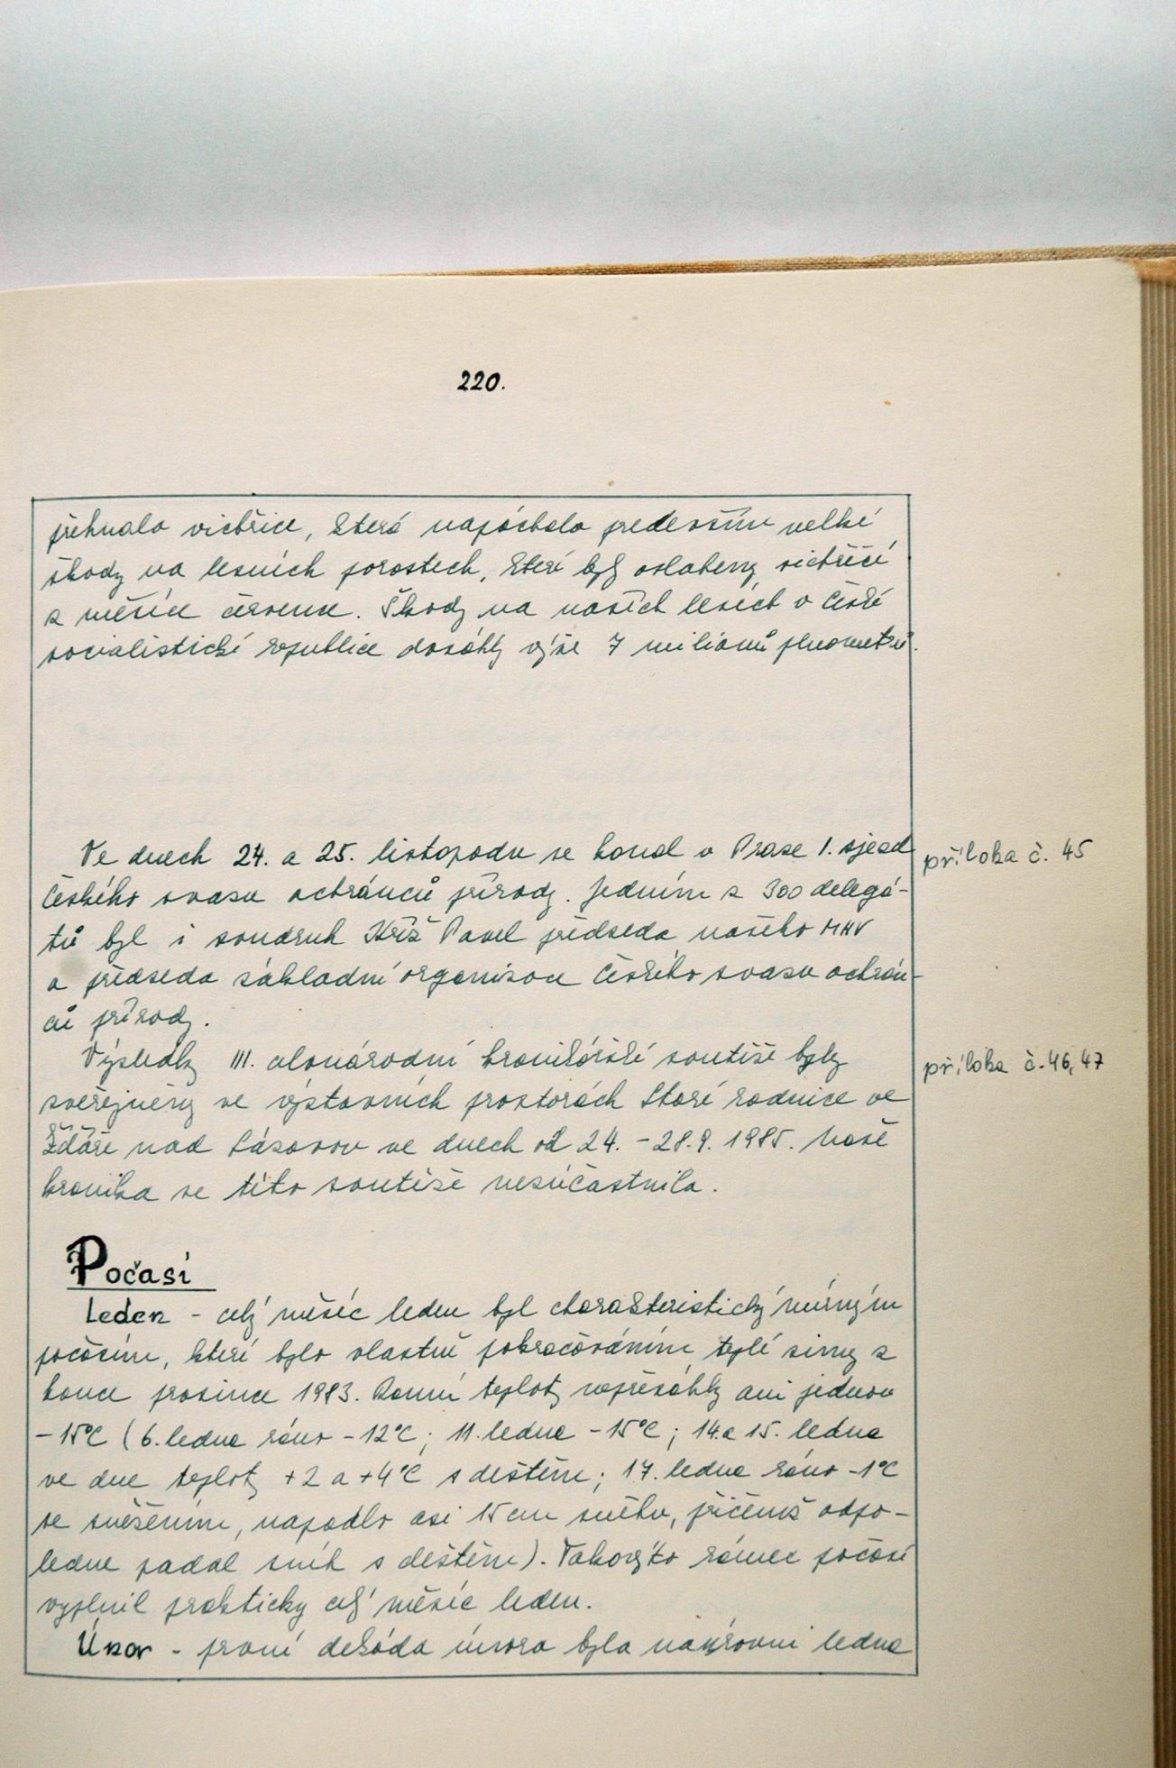 220.
přehnala vichřice, která napáchala především velké
škody na lesních porostech, které byly oslabeny vichřicí
z měsíce července. Škody na našich lesích v České
socialistické republice dosáhly výše 7 milionů plnometrů.
Ve dnech 24. a 25. listopadu se konal v Praze 1. sjezd
Českého svazu ochránců přírody. Jedním z 300 delegá-
tů byl i soudruh Kříž Pavel předseda našeho MNV
a předseda základní organizace Českého svazu ochrán-
ců přírody.
příloha č. 45
Výsledky III. celonárodní kronikářské soutěže byly
zveřejněny ve výstavních prostorách Staré radnice ve
Žďáře nad Sázavou ve dnech od 24. - 28.9. 1985. Naše
kronika se této soutěže nesúčastnila.
příloha č. 46, 47
Počasí
Leden - celý měsíc leden byl charakteristický mírným
počasím, které bylo vlastně pokračováním teplé zimy z
konce prosince 1983. Ranní teploty nepřesáhly ani jednou
-15°C (6. ledna ráno -12°C; 11. ledna -15°C; 14. a 15. ledna
ve dne teploty +2 a +4°C s deštěm; 17. ledna ráno -1°C
se sněžením, napadlo asi 15 cm sněhu, přičemž odpo-
ledne padal sníh s deštěm). Takovýto rámec počasí
vyplnil prakticky celý měsíc leden.
Únor - první dekáda února byla na úrovni ledna